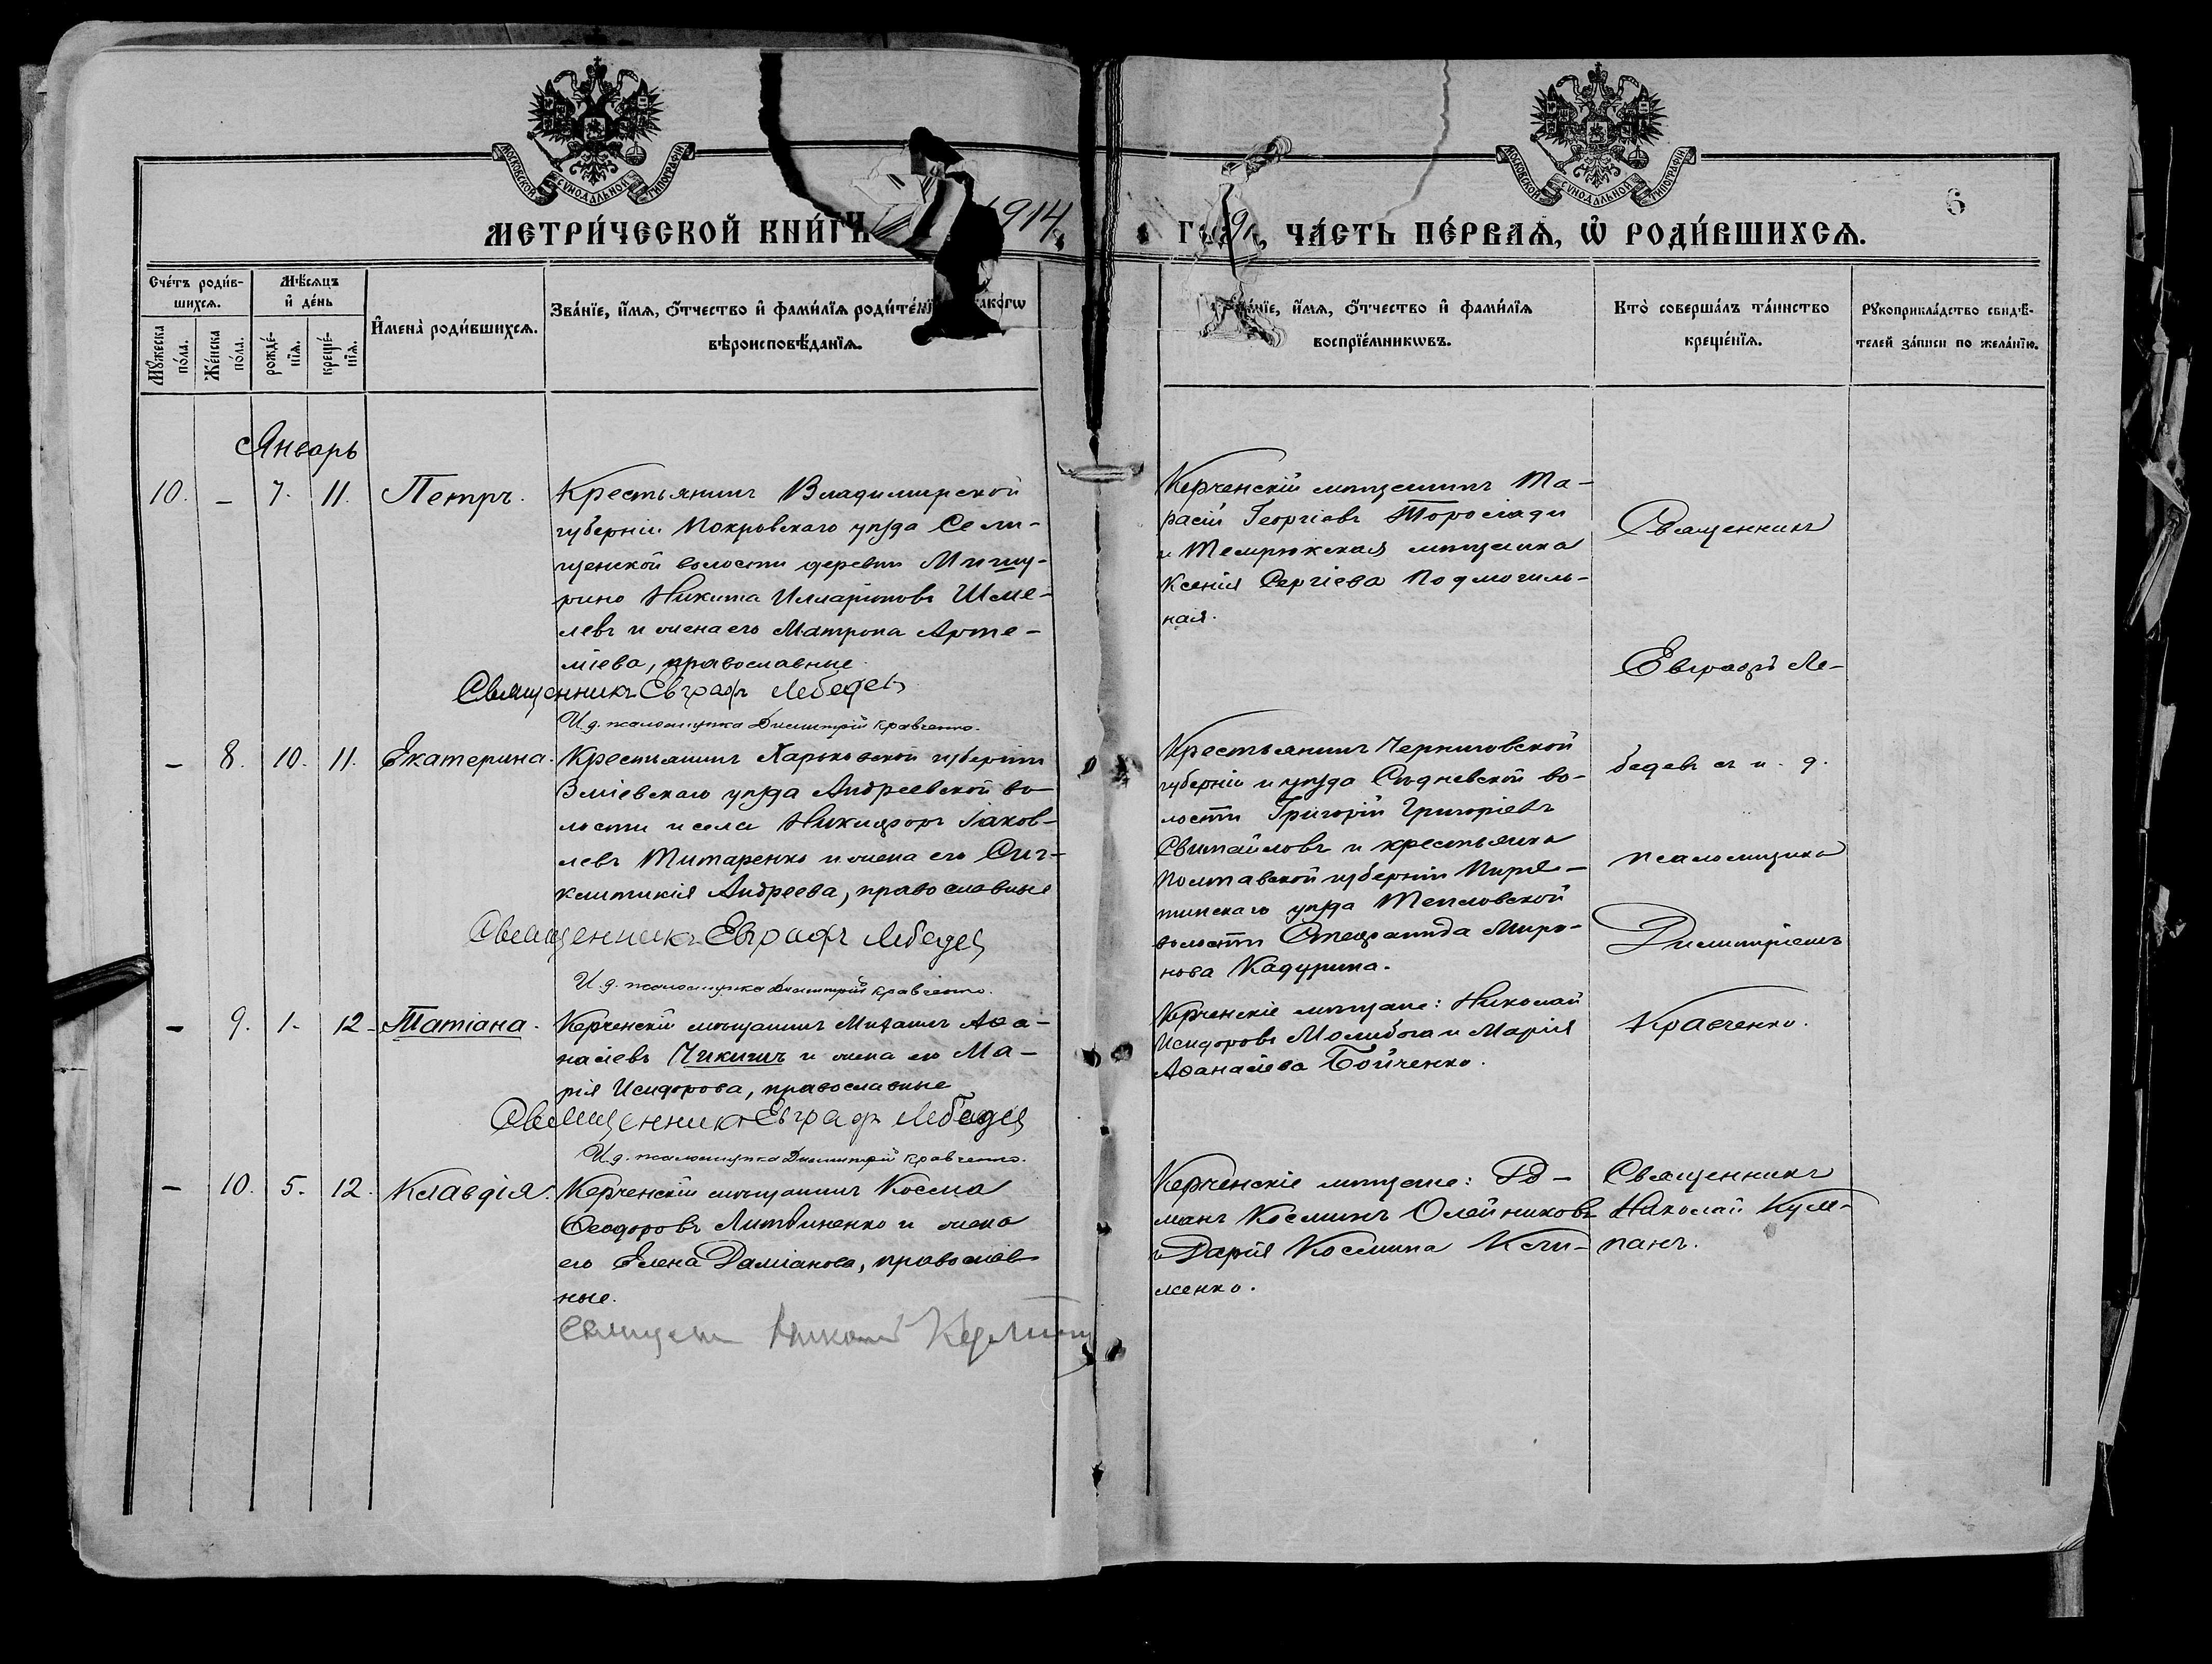 МОСКОВСКОЙ СѴНОДАЛЬНОЙ ТИПОГРАФІИ
МОСКОВСКОЙ СѴНОДАЛЬНОЙ ТИПОГРАФІИ
6
МЕТРИ́ЧЕСКОЙ КНИ́ГИ 1914
ЧА́СТЬ ПЕ́РВАЯ, Ѡ РОДИ́ВШИХСЯ.
Сче́тъ роди́в-
шихся.
Мꙋжеска
по́ла.
Же́нска
по́ла.
Мѣ́сяцъ
и҆ де́нь
рожде́-
нїя.
креще́-
нїя.
И҆мена̀ роди́вшихся.
Зва́нїе, и҆́мя, ѻ҆́тчество и҆ фами́лїя роди́те како́гѡ
вѣроисповѣ́данїя.
и҆́мя, ѻ҆́тчество и҆ фами́лїя
воспрїе́мникѡвъ.
Кто̀ соверша́лъ та́инство
креще́нїя.
Рꙋкоприкла́дство свидѣ́-
телей за́писи по жела́нїю.
Январь
10. – 7. 11. Петръ.
Крестьянинъ Владимирской
губерніи Покровскаго уѣзда Сели-
щенской волости деревни Мишу-
рино Никита Илларіоновъ Шме-
левъ и жена его Матрона Арте-
міева, православные.
Священникъ Евграфъ Лебедевъ
И.д. псаломщика Димитрій Кравченко.
Керченскій мѣщанинъ Та-
расій Георгіевъ
и Темрюкская мѣщанка
Ксенія Сергіева Подмогиль-
ная.
Священникъ
Евграфъ Ле-
бедевъ съ и. д.
псаломщика
Димитріемъ
Кравченко.
– 8. 10. 11. Екатерина.
Крестьянинъ Харьковской губерніи
Зміевскаго уѣзда Андреевской во-
лости и села Никифоръ Іаков-
левъ Титаренко и жена его Син-
клитикія Андреева, православные
Священникъ Евграфъ Лебедев
И.д. псаломщика Димитрій Кравченко.
Крестьянинъ Черниговской
губерніи и уѣзда Седневской во-
лости Григорій Григоріевъ
Свитайловъ и крестьянка
Полтавской губерніи Пиря-
тинскаго уѣзда Тепловской
волости Стефанида Миро-
нова Кадурина.
– 9. 1. 12. Татіана.
Керченскій мѣщанинъ Михаилъ Аѳа-
насіевъ Чикичъ и жена его Ма-
рія Исидорова, православные
Священникъ Евграфъ Лебедев
И.д. псаломщика Димитрій Кравченко.
Керченскіе мѣщане: Николай
Исидоровъ Молибога и Марія
Аѳанасіева Бойченко.
– 10. 5. 12. Клавдія.
Керченскій мѣщанинъ Косма
Ѳеодоровъ Литвиненко и жена
его Елена Даміанова, православ-
ные.
Николай
Керченскіе мѣщане: Ро-
манъ Косминъ Олейниковъ
и Дарія Космина Кли-
менко.
Священникъ
Николай Кум-
панъ.